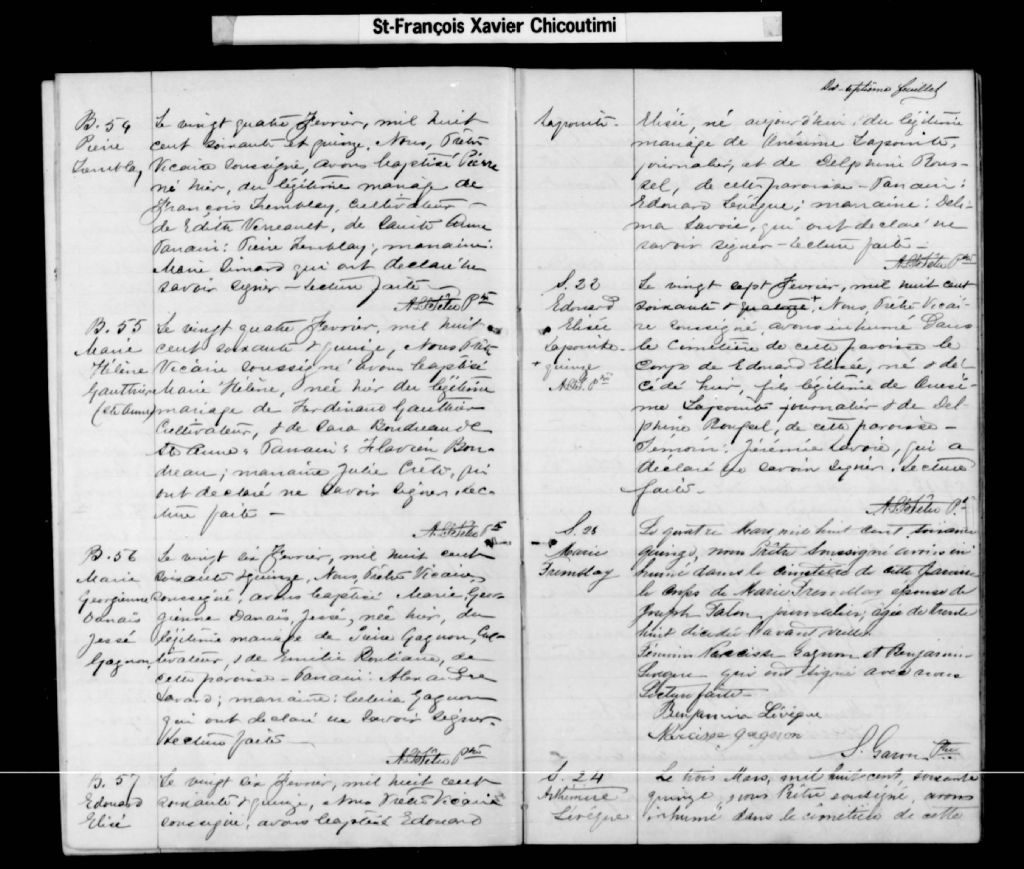 St-François Xavier Chicoutimi
B. 54
Pierre
Tremblay
Le vingt quatre Fevrier, mil huit
cent soixante et quinze, Nous, Prêtre
Vicaire soussigné, avons baptisé Pierre
né hier, du légitime mariage de
François Tremblay, Cultivateur
de Edith Verreault, de Sainte Anne
Parrain: Pierre Tremblay; marraine:
Marie Simard qui ont declaré ne
savoir signer - Lecture faite -
Ptre
B. 55
Marie
Hélène
Gauthier
(Ste Anne)
Le vingt quatre Fevrier, mil huit
cent soixante & quinze, Nous Prêtre
Vicaire soussigné avons baptisé
Marie Hélène, née hier du légitime
mariage de Ferdinand Gauthier
Cultivateur, & de Boudreau de
Ste Anne - Parrain: Flavien Bou-
dreau; marraine Julie Crête, qui
ont declaré ne savoir signer. Lec-
ture faite -
B. 56
Marie
Georgienne
Danaïs
Jessé
Gagnon
Le vingt six Fevrier, mil huit cent
soixante & quinze, Nous, Prêtre Vicaire
soussigné, avons baptisé Marie, Geor-
gienne Danaïs, Jessé, née hier, du
légitime mariage de Gagnon, Cul-
tivateur, & de Emilie Rouliane, de
cette paroisse - Parrain: Alexandre
Savard; marraine: Gagnon
qui ont declaré ne savoir signer.
Lecture faite -
Ptre
B. 57
Edouard
Elisé
Le vingt six Fevrier, mil huit cent
soixante & quinze, Nous Prêtre Vicaire
soussigné, avons baptisé Edouard
Dix-septième feuillet
Lapointe.
Elisée, né aujourd'hui, du légitime
mariage de Onésime Lapointe,
journalier, et de Delphine Rous-
sel, de cette paroisse - Parrain:
Edouard Lévêque; marraine: Deli-
ma Savoie, qui ont declaré ne
savoir signer - Lecture faite -
Ptre
S. 22
Edouard
Elisée
Lapointe
+ quinze
Ptre
Le vingt sept Fevrier, mil huit cent
soixante & quatorze+, Nous, Prêtre Vicai-
re soussigné, avons inhumé dans
le Cimetière de cette paroisse le
Corps de Edouard Elisée, né & dé-
cédé hier, fils légitime de Onesi-
me Lapointe journalier & de Del-
phine Roussel, de cette paroisse -
Temoin: Jérémie Savoie, qui a
declaré ne savoir signer. Lecture
faite -
S. 23
Marie
Tremblay
Le quatre Mars, mil huit cent soixante
quinze, nous Prêtre soussigné avons in
humé dans le cimetière de cette paroisse
le corps de Marie Tremblay épouse de
Joseph Talon, journalier, agée de trente
huit décédée l'avant veille
Témoins Narcisse Gagnon et Benjamin
Lévêque qui ont signé avec nous
Lecture faite -
Benjamin Lévêque
Narcisse gagnon
Ptre
S. 24
Lévêque
Le trois Mars, mil huit cent, soixante
quinze, nous Prêtre soussigné, avons
inhumé dans le cimetière de cette